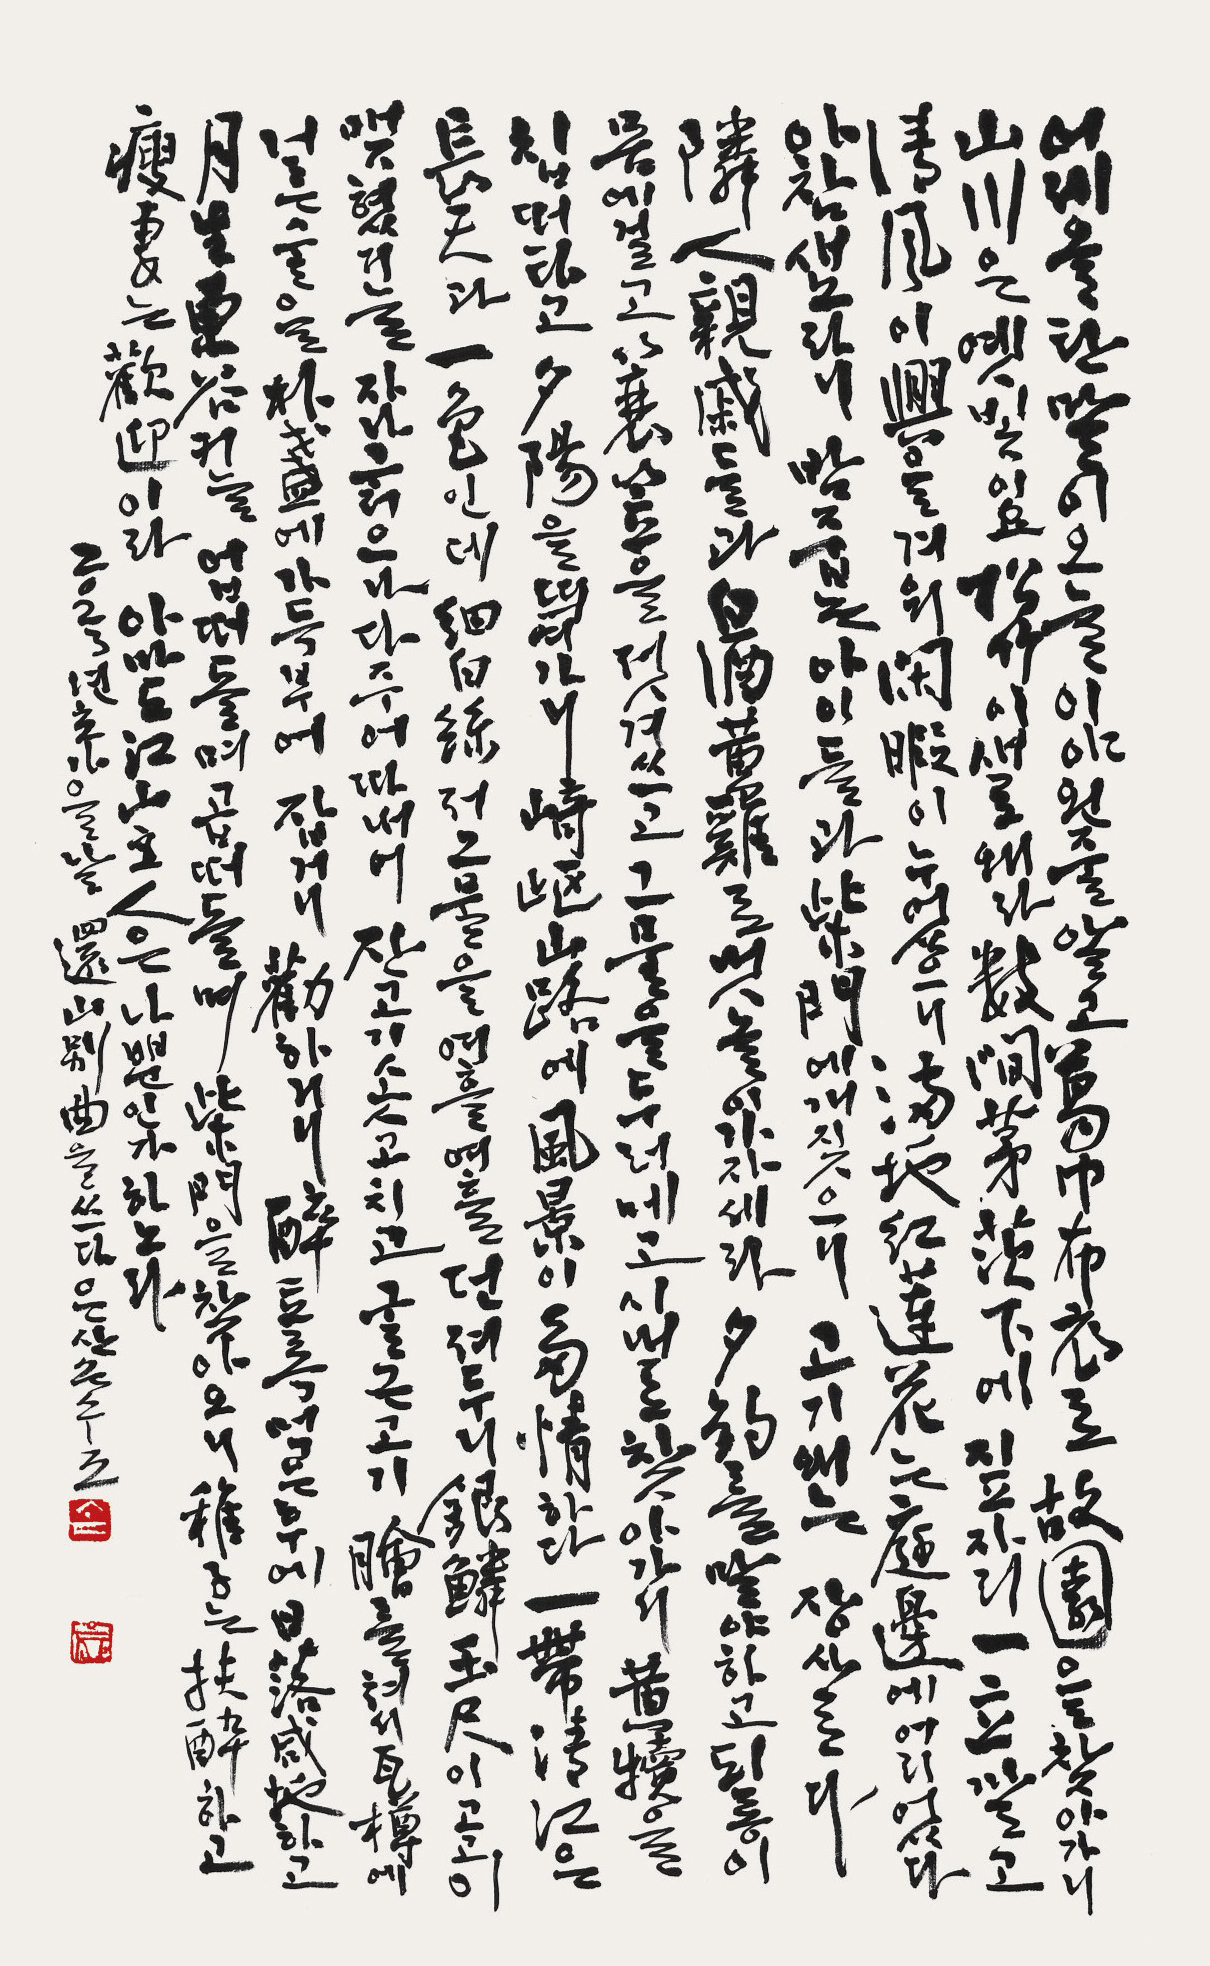 어제올탄말이오늘이야왼줄알고葛巾布衣로 故園을찻아가니
山川은옛빗이요 松竹이새로왜라 數間茅茨下에 집자리一立깔고
淸風이興을겨워閑暇이누어쓰니 滿地紅蓮花는庭邊에어리엇다
아참새노라니 밤줍는아이들과 柴門에개짓으니 고기왜는 장사로다
隣人親戚들과 白酒黃鷄로냇놀이가자세라 夕釣를말야하고되롱이
몸에걸고 을젓겨쓰고그물을두러메고시내로찻아가니 黃犢을
칩떠타고 夕陽을띄여가니 崎嶇山路에 風景이多情하다 一帶淸江은
長天과 一色인데 細白絲저그물을여흘여흘던져두니銀鱗玉尺이고고이
맺혓거늘자나굵으나다주어따내어 잔고기솟고치고 굴근고기 膾를쳐서瓦樽에
닉은술을朴盞에가득부어 잡거니勸하거니 醉토록먹은후에日落咸地하고
月生東谷커늘 업떠들며곱떠들며 柴門을찾아오니 稚子는扶醉하고
瘦妻는歡迎이라 아마도江山主人은나뿐인가하노라
년초가을날 還山別曲을쓰다은산